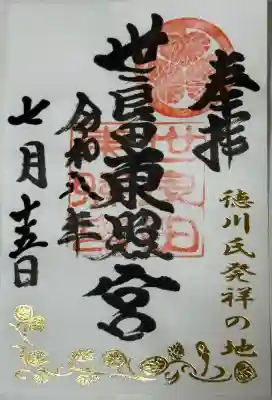 奉拝
徳川氏発祥の地
世良田東照宮
世良田
東照宮
令和八年
七月十五日